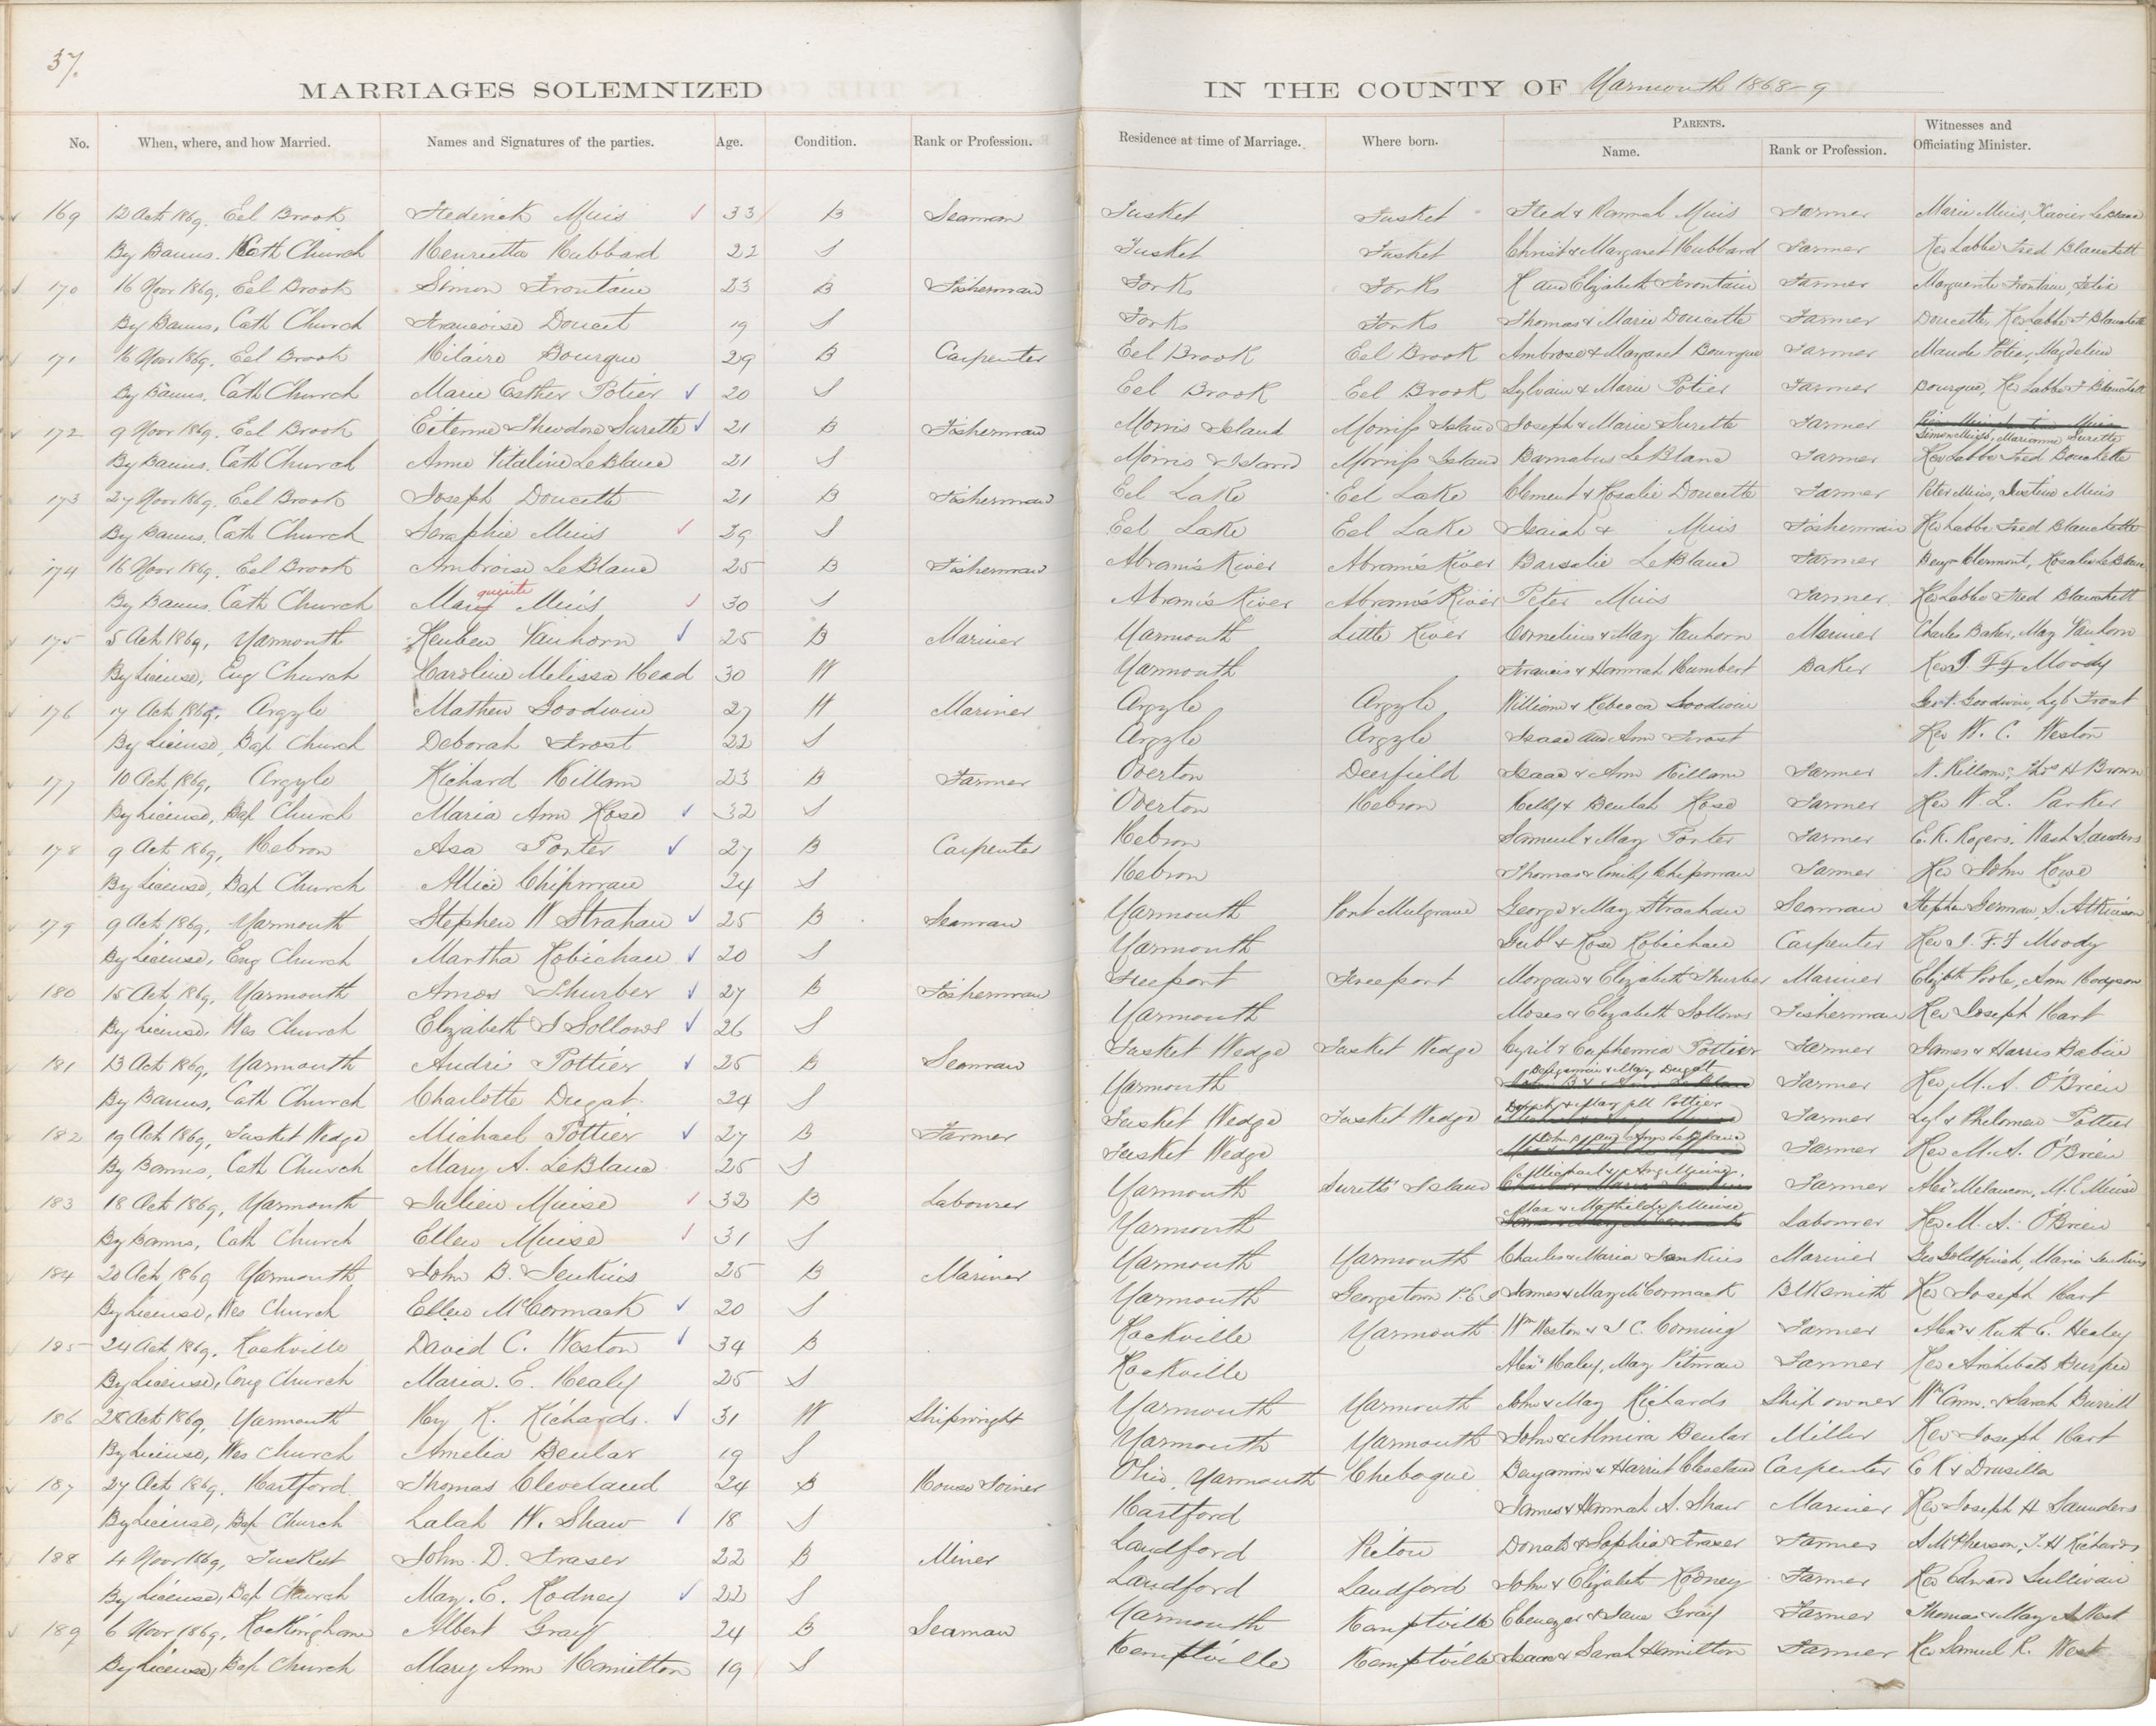 37.
MARRIAGES SOLEMNIZED IN THE COUNTY OF Yarmouth 1868-9
No. When, where, and how Married. Names and Signatures of the parties. Age. Condition. Rank or Profession. Residence at time of Marriage. Where born. PARENTS. Name. Rank or Profession. Witnesses and Officiating Minister.
169 12 Oct 1869, Eel Brook Frederick Muis 33 B Seaman Tusket Tusket Fred & Hannah Muis Farmer Marie Muis, Xavier LeBlanc
By Banns. Cath Church Henrietta Hubbard 22 S Tusket Tusket Christ & Margaret Hubbard Farmer Rev Labbe Fred Blanchett
170 16 Novr 1869, Eel Brook Simon Frontain 23 B Fisherman Forks Forks H and Elizabeth Frontain Farmer Marguerite Frontain, Felix
By Banns, Cath Church Francoise Doucet 19 S Forks Forks Thomas & Marie Doucette Farmer Doucette, Rev Labbe F Blanchette
171 16 Novr 1869, Eel Brook Hilaire Bourque 29 B Carpenter Eel Brook Eel Brook Ambrose & Margaret Bourque Farmer Maude Potier, Magdeline
By Banns, Cath Church Marie Esther Potier 20 S Eel Brook Eel Brook Sylvain & Marie Potier Farmer Bourque, Rev Labbe F Blanchette
172 9 Novr 1869, Eel Brook Eitenne Theodore Surette 21 B Fisherman Morris Island Morriss Island Joseph & Marie Surette Farmer Simon Muise, Marianne Surette
By Banns, Cath Church Anne Vitaline LeBlanc 21 S Morris Island Morriss Island Barnabus LeBlanc Farmer Rev Labbe Fred Bouchette
173 27 Novr 1869, Eel Brook Joseph Doucette 21 B Fisherman Eel Lake Eel Lake Clement & Rosalie Doucette Farmer Peter Muis, Justine Muis
By Banns, Cath Church Seraphie Muis 29 S Eel Lake Eel Lake Isaiah & Muis Fisherman Rev Labbe Fred Blanchette
174 16 Novr 1869, Eel Brook Ambroise LeBlanc 25 B Fisherman Abram's River Abram's River Barsalie LeBlanc Farmer Benj Clermont, Rosalie LeBlanc
By Banns, Cath Church Marguerite Muis 30 S Abram's River Abram's River Peter Muis Farmer Rev Labbe Fred Blanchett
175 5 Oct 1869, Yarmouth Reuben Vanhorn 25 B Mariner Yarmouth Little River Cornelius & Mary Vanhorn Mariner Charles Baker, May Vanhorn
By License, Eng Church Caroline Melissa Head 30 W Yarmouth Francis & Hannah Humbert Baker Rev J. T. T. Moody
176 17 Oct 1869, Argyle Mathew Goodwin 27 W Mariner Argyle Argyle William & Rebecca Goodwin Geo T. Goodwin, Lyb Frost
By License, Bap Church Deborah Frost 22 S Argyle Argyle Isaac and Ann Frost Rev W. C. Weston
177 10 Oct 1869, Argyle Richard Killam 23 B Farmer Overton Deerfield Isaac & Ann Killam Farmer N. Killam, Thos H Brown
By License, Bap Church Maria Ann Rose 32 S Overton Hebron Kelly & Beulah Rose Farmer Rev W. L. Parker
178 9 Oct 1869, Hebron Asa Porter 27 B Carpenter Hebron Samuel & Mary Porter Farmer E. K. Rogers, Wash Saunders
By License, Bap Church Allice Chipman 24 S Hebron Thomas & Emily Chipman Farmer Rev John Rowe
179 9 Oct 1869, Yarmouth Stephen W Strahan 25 B Seaman Yarmouth Port Mulgrave George & May Strachan Seaman Stephen German, S. Atkinson
By License, Eng Church Martha Robichau 20 S Yarmouth Gabl & Rose Robichau Carpenter Rev J. T. T Moody
180 15 Oct 1869, Yarmouth Amos Thurber 27 B Fisherman Freeport Freeport Morgan & Elizabeth Thurber Mariner Elizbth Poole, Ann Hodgson
By License, Wes Church Elizabeth S Sollows 26 S Yarmouth Moses & Elizabeth Sollows Fisherman Rev Joseph Hart
181 13 Oct 1869, Yarmouth Andri Pottier 25 B Seaman Tusket Wedge Tusket Wedge Cyril & Euphemia Pottier Farmer James & Harris Babin
By Banns, Cath Church Charlotte Dugat 24 S Yarmouth Benjamin & Mary Dugatt Farmer Rev M. A. O'Brien
182 19 Oct 1869, Tusket Wedge Michael Pottier 27 B Farmer Tusket Wedge Tusket Wedge Pottier Farmer Lyl & Philomen Pottier
By Banns, Cath Church Mary A. LeBlanc 25 S Tusket Wedge John B. and LeBlanc Farmer Rev M. A. O'Brien
183 18 Oct 1869, Yarmouth Julien Muise 32 B Labourer Yarmouth Surette Island Michael & Ang Muise Farmer Alex Melancon, M. E Muise
By Banns, Cath Church Ellen Muise 31 S Yarmouth Max & Mathilde Muise Labourer Rev M. A. O'Brien
184 20 Oct 1869 Yarmouth John B. Jenkins 25 B Mariner Yarmouth Yarmouth Charles & Maria Jenkins Mariner Geo Goldfinch, Maria Jenkins
By License, Wes Church Ellen McCormack 20 S Yarmouth Georgetown P.E.I James & Mary McCormack Blksmith Rev Joseph Hart
185 24 Oct 1869, Rockville David C. Weston 34 B Rockville Yarmouth Wm Weston & S C. Corning Farmer Alexr & Ruth E. Healey
By License, Cong Church Maria. E. Healy 25 S Rockville Alexr Haley, May Pitman Farmer Rev Archibald Burpee
186 28 Oct 1869, Yarmouth Hy K. Richards. 31 W Shipwright Yarmouth Yarmouth John & May Richards Ship owner Wm Cann. & Sarah Burrill
By License, Wes Church Amelia Beular 19 S Yarmouth Yarmouth John & Almira Beular Miller Rev Joseph Hart
187 27 Oct 1869, Hartford Thomas Cleveland 24 B House Joiner Ohio, Yarmouth Chebogue Benjamin & Harriet Cleveland Carpenter E K & Drusilla
By License, Bap Church Lalah W. Shaw 18 S Hartford James & Hannah A. Shaw Mariner Rev Joseph H Saunders
188 4 Novr 1869, Tusket John. D. Fraser 22 B Miner Landford Pictou Donald & Sophia Fraser Farmer A McPherson, J. H Richards
By License, Bap Church May. E. Rodney 22 S Landford Landford John & Elizabeth Rodney Farmer Rev Edward Sullivan
189 6 Novr 1869, Rockingham Albert Gray 24 B Seaman Yarmouth Kemptville Ebenezer & Jane Gray Farmer Thomas & May A West
By License, Bap Church Mary Ann Hamilton 19 S Kemptville Kemptville Isaac & Sarah Hamilton Farmer Rev Samuel R. West